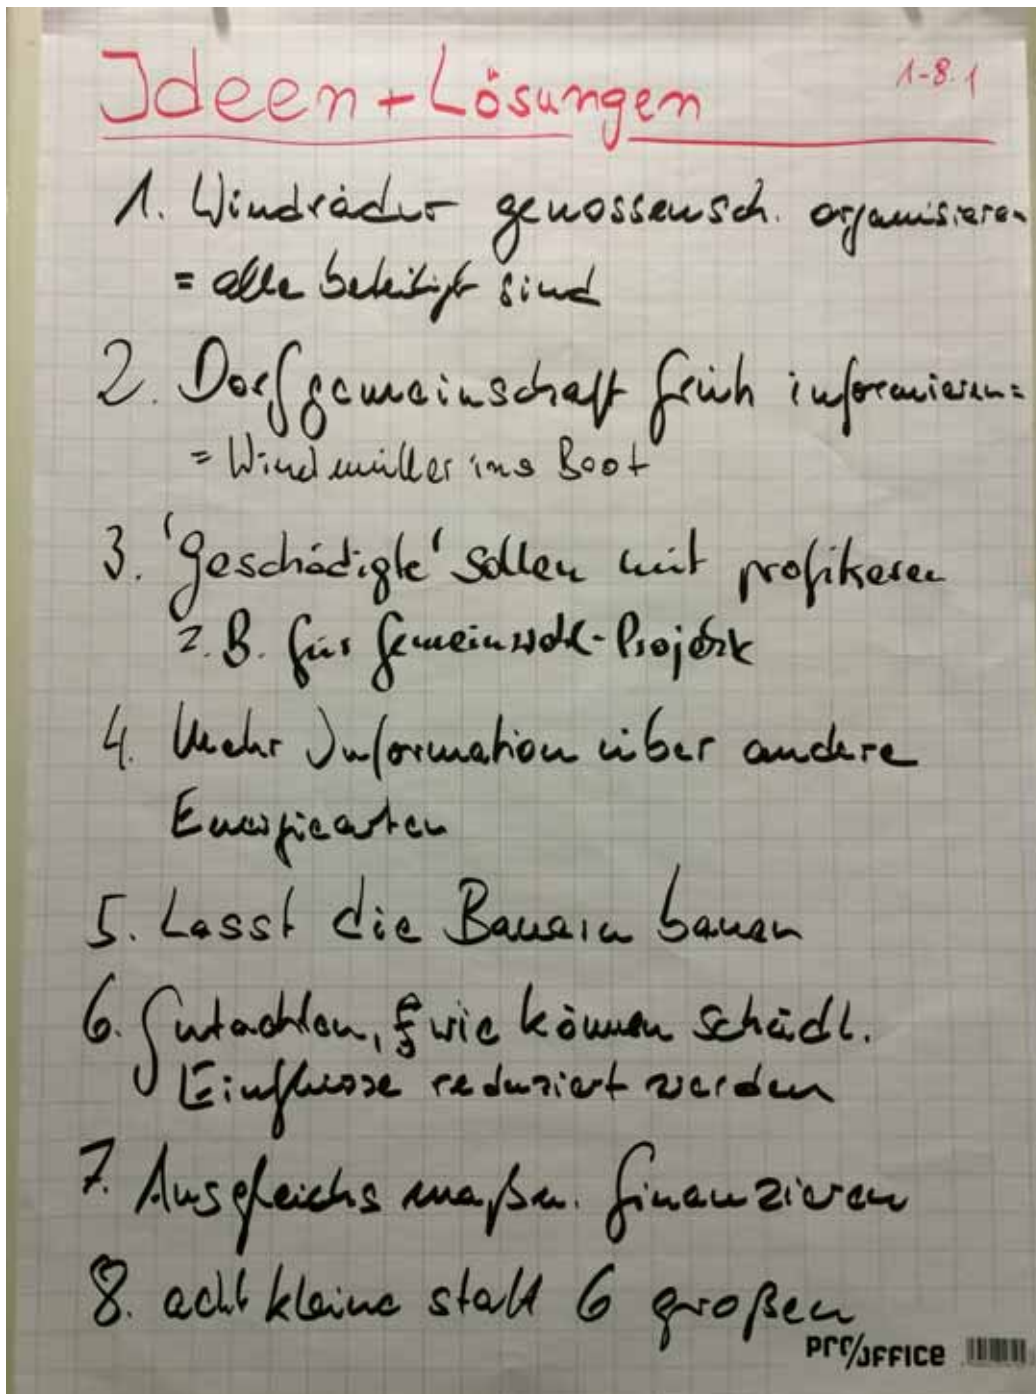 Ideen + Lösungen 1-8.1
1. Windräder genossensch. organisieren
= alle beteiligt sind
2. Dorfgemeinschaft früh informieren =
= Windmüller ins Boot
3. 'Geschädigte' sollen mit profitieren
z.B. für Gemeinwohl-Projekte
4. Mehr Information über andere
Energiearten
5. Lasst die Bauern bauen
6. Gutachten, wie können schädl.
Einflüsse reduziert werden
7. Ausgleichsmaßn. finanzieren
8. acht kleine statt 6 großen
PRO/OFFICE